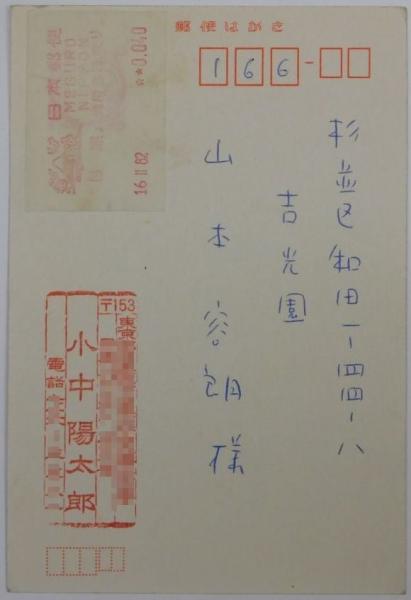 郵便はがき
166
杉並区和田一ー四四ー八
吉光園
山本容朗様
日本郵便
MEGURO
NIPPON
目黒
**0.040
16 II 82
〒153
東京
小中陽太郎
電話